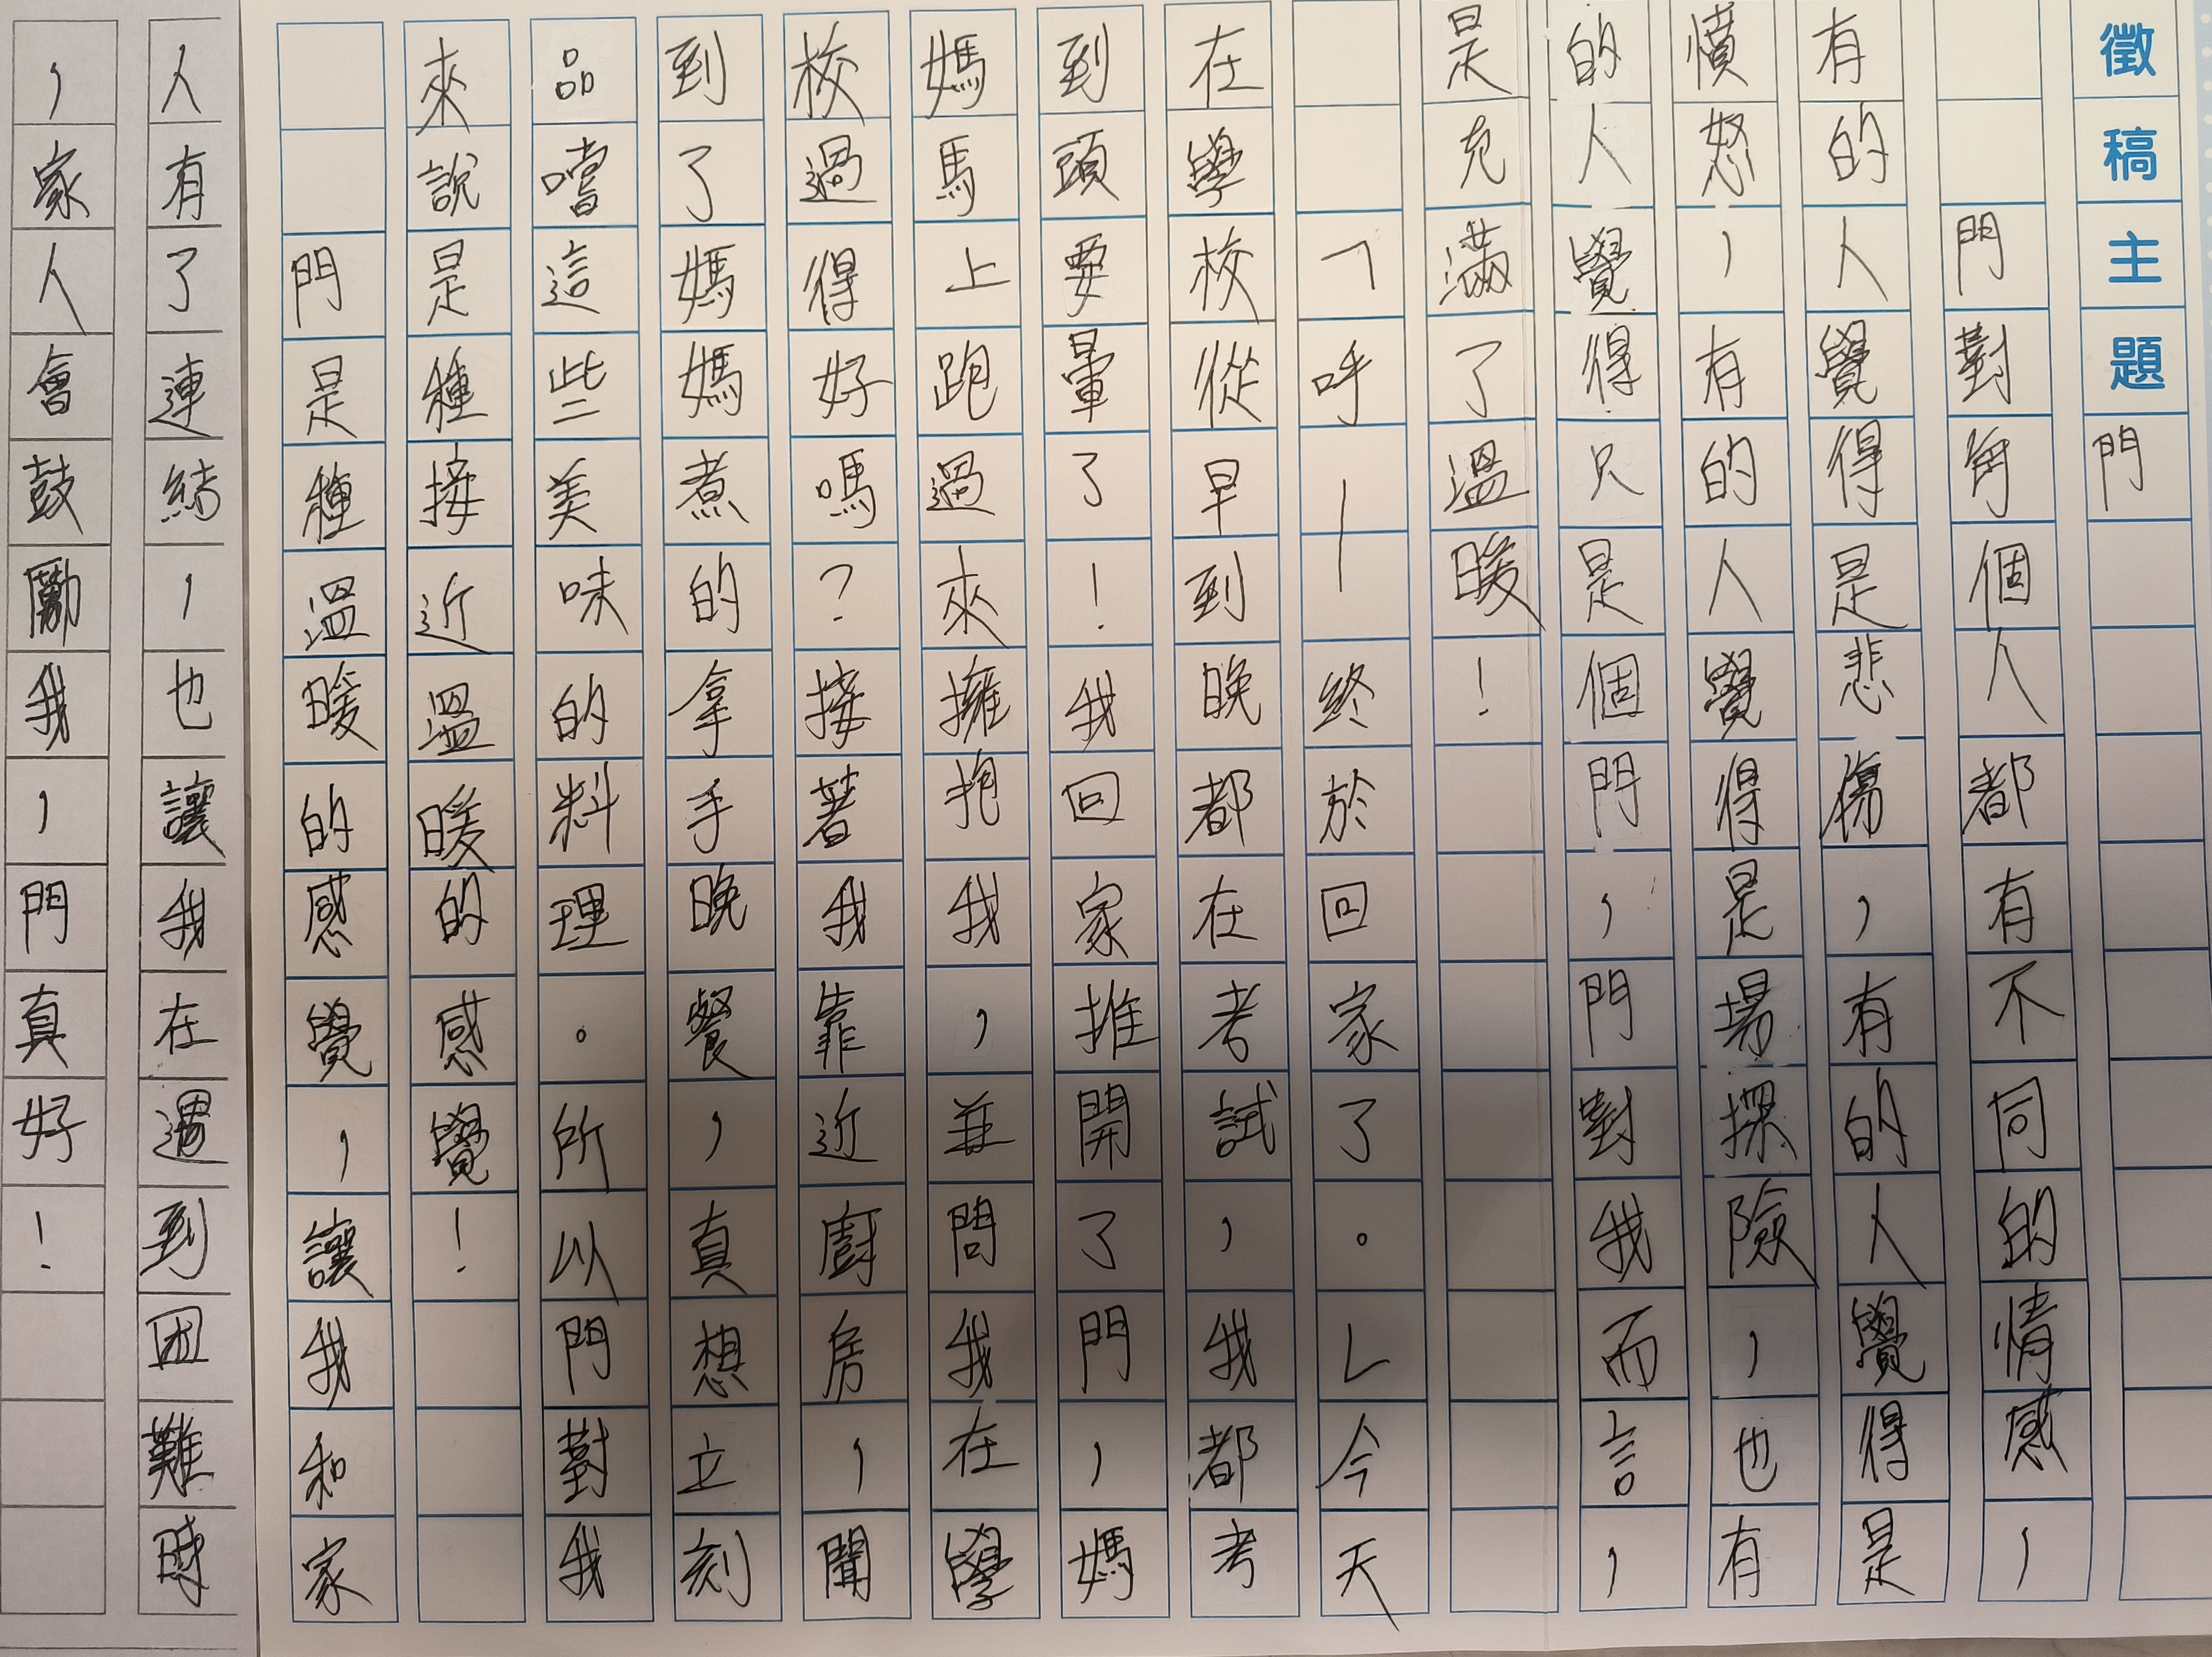 徵稿主題門
門對每個人都有不同的情感，
有的人覺得是悲傷，有的人覺得是
憤怒，有的人覺得是場探險，也有
的人覺得只是個門，門對我而言，
是充滿了溫暖！
「呼——終於回家了。」今天
在學校從早到晚都在考試，我都考
到頭要暈了！我回家推開了門，媽
媽馬上跑過來擁抱我，並問我在學
校過得好嗎？接著我靠近廚房，聞
到了媽媽煮的拿手晚餐，真想立刻
品嚐這些美味的料理。所以門對我
來說是種接近溫暖的感覺！
門是種溫暖的感覺，讓我和家
人有了連結，也讓我在遇到困難時
，家人會鼓勵我，門真好！